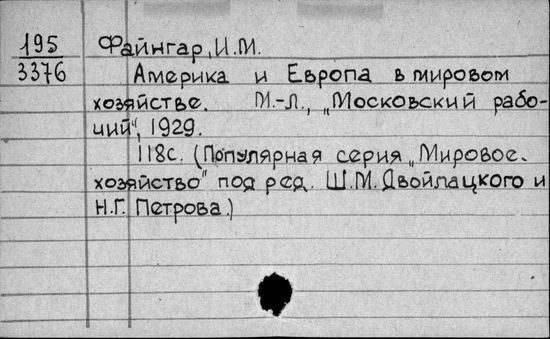 195 Файнгар, И.М.
3376 Америка и Европа в мировом
хозяйстве. М.-Л., „Московский рабо-
чий", 1929.
118с. (Популярная серия „Мировое.
хозяйство" под ред. Ш.М. Двойлацкого и
Н.Г. Петрова.)